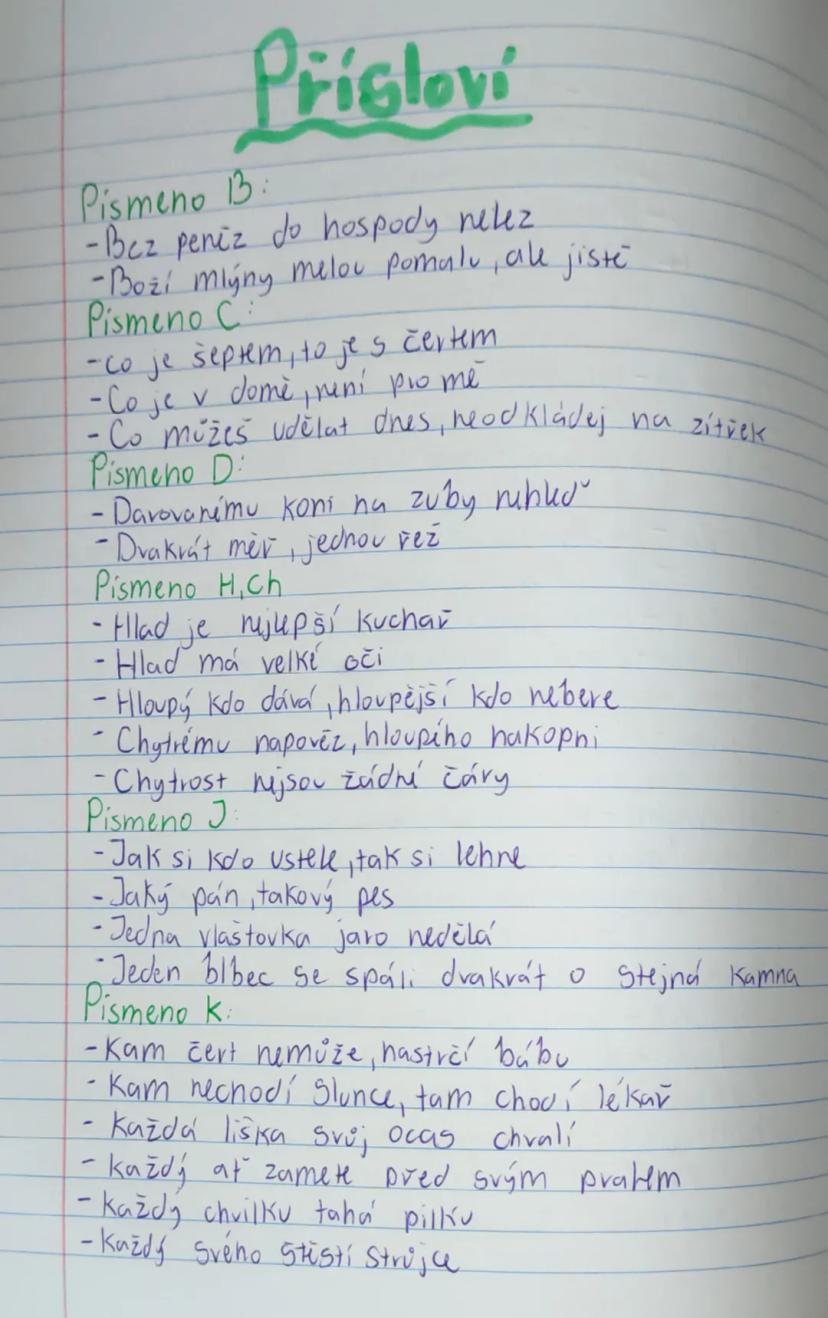 Přísloví
Písmeno B:
-Bez peněz do hospody nelez
-Boží mlýny melou pomalu, ale jistě
Písmeno C:
-Co je šeptem, to je s čertem
-Co je v domě, není pro mě
-Co můžeš udělat dnes, neodkládej na zítřek
Písmeno D:
-Darovanému koni na zuby nehleď
-Dvakrát měř, jednou řež
Písmeno H, Ch
-Hlad je nejlepší kuchař
-Hlad má velké oči
-Hloupý kdo dává, hloupější kdo nebere
-Chytrému napověz, hloupého nakopni
-Chytrost nejsou žádné čáry
Písmeno J:
-Jak si kdo ustele, tak si lehne
-Jaký pán, takový pes
-Jedna vlaštovka jaro nedělá
-Jeden blbec se spálí dvakrát o stejná kamna
Písmeno K:
-Kam čert nemůže, nastrčí bábu
-Kam nechodí slunce, tam chodí lékař
-Každá liška svůj ocas chválí
-Každý ať zamete před svým prahem
-Každý chvilku tahá pilku
-Každý svého štěstí strůjce